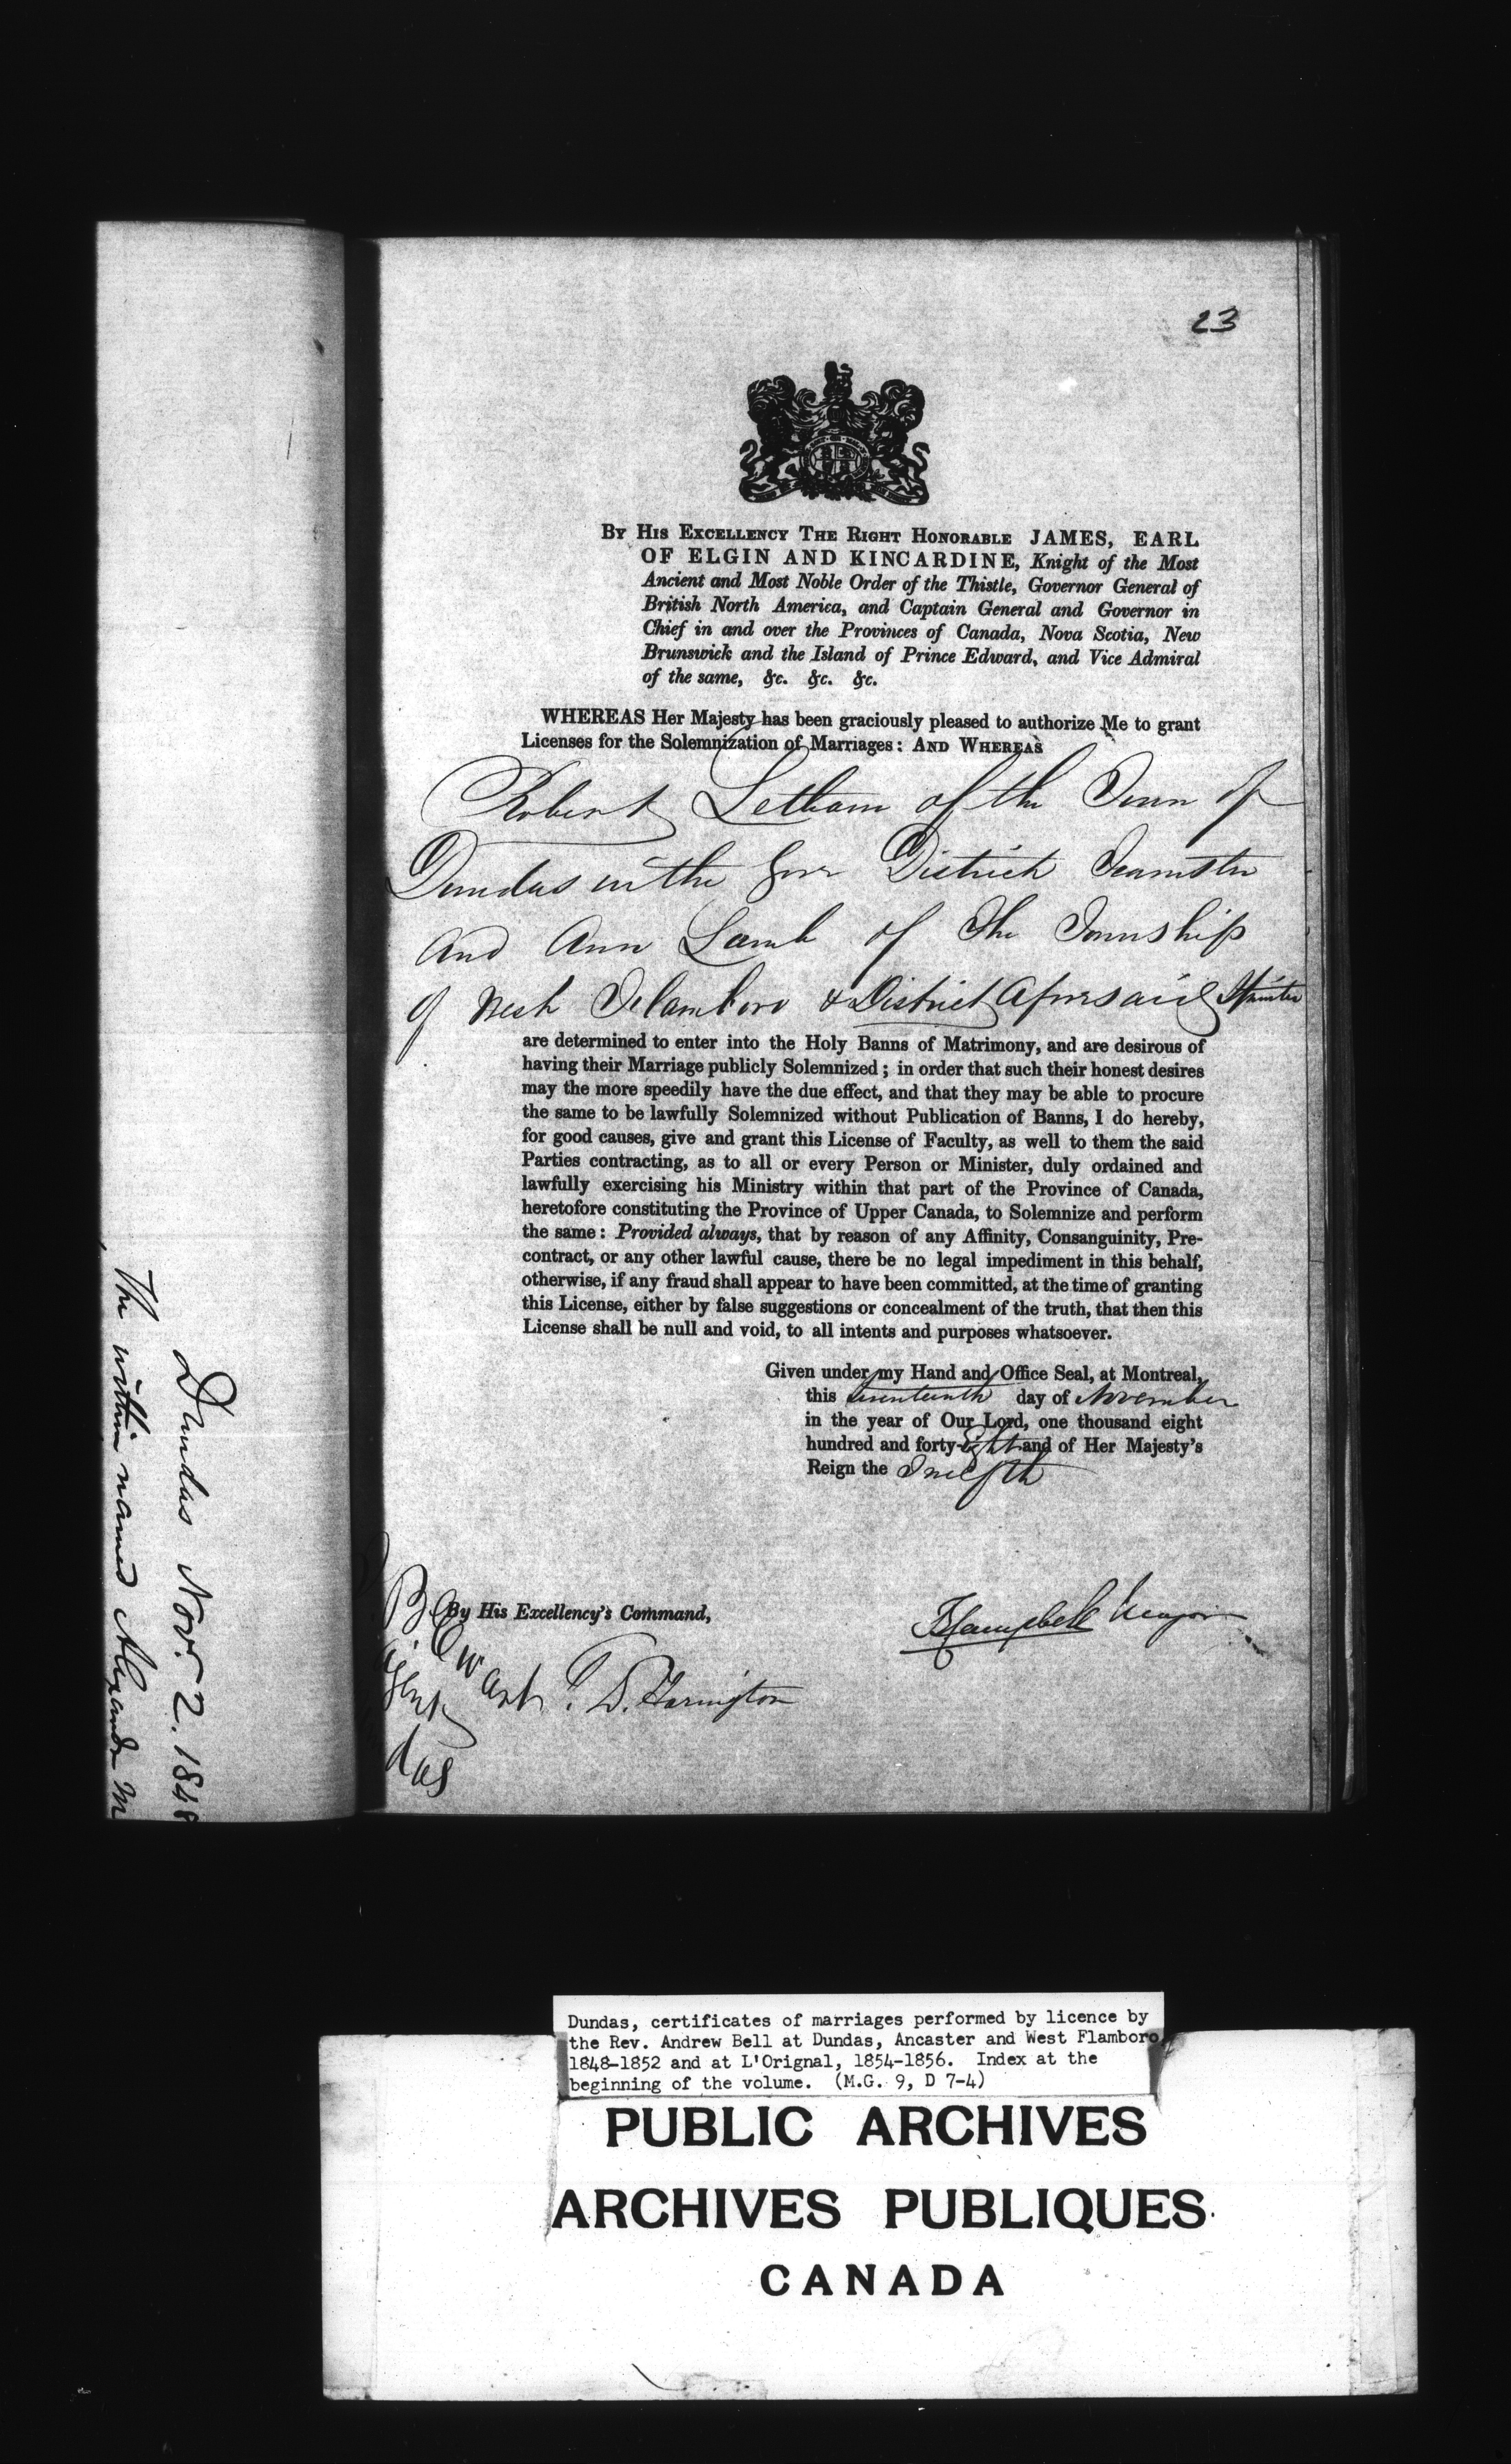 23
By His Excellency The Right Honorable JAMES, EARL
OF ELGIN AND KINCARDINE, Knight of the Most
Ancient and Most Noble Order of the Thistle, Governor General of
British North America, and Captain General and Governor in
Chief in and over the Provinces of Canada, Nova Scotia, New
Brunswick and the Island of Prince Edward, and Vice Admiral
of the same, &c. &c. &c.
WHEREAS Her Majesty has been graciously pleased to authorize Me to grant
Licenses for the Solemnization of Marriages: AND WHEREAS
Robert Letham of the Town of
Dundas in the Gore District Teamster
and Ann Lamb of the Township
of West Flamboro & District Aforesaid Spinster
are determined to enter into the Holy Banns of Matrimony, and are desirous of
having their Marriage publicly Solemnized; in order that such their honest desires
may the more speedily have the due effect, and that they may be able to procure
the same to be lawfully Solemnized without Publication of Banns, I do hereby,
for good causes, give and grant this License of Faculty, as well to them the said
Parties contracting, as to all or every Person or Minister, duly ordained and
lawfully exercising his Ministry within that part of the Province of Canada,
heretofore constituting the Province of Upper Canada, to Solemnize and perform
the same: Provided always, that by reason of any Affinity, Consanguinity, Pre-
contract, or any other lawful cause, there be no legal impediment in this behalf,
otherwise, if any fraud shall appear to have been committed, at the time of granting
this License, either by false suggestions or concealment of the truth, that then this
License shall be null and void, to all intents and purposes whatsoever.
Given under my Hand and Office Seal, at Montreal,
this day of November
in the year of Our Lord, one thousand eight
hundred and forty-Eight and of Her Majesty's
Reign the Twelfth
By His Excellency's Command,
Campbell Major
D. Harington
das
Dundas Nov. 2. 1848
The within named Alexander M
Dundas, certificates of marriages performed by licence by
the Rev. Andrew Bell at Dundas, Ancaster and West Flamboro,
1848-1852 and at L'Orignal, 1854-1856. Index at the
beginning of the volume. (M.G. 9, D 7-4)
PUBLIC ARCHIVES
ARCHIVES PUBLIQUES
CANADA